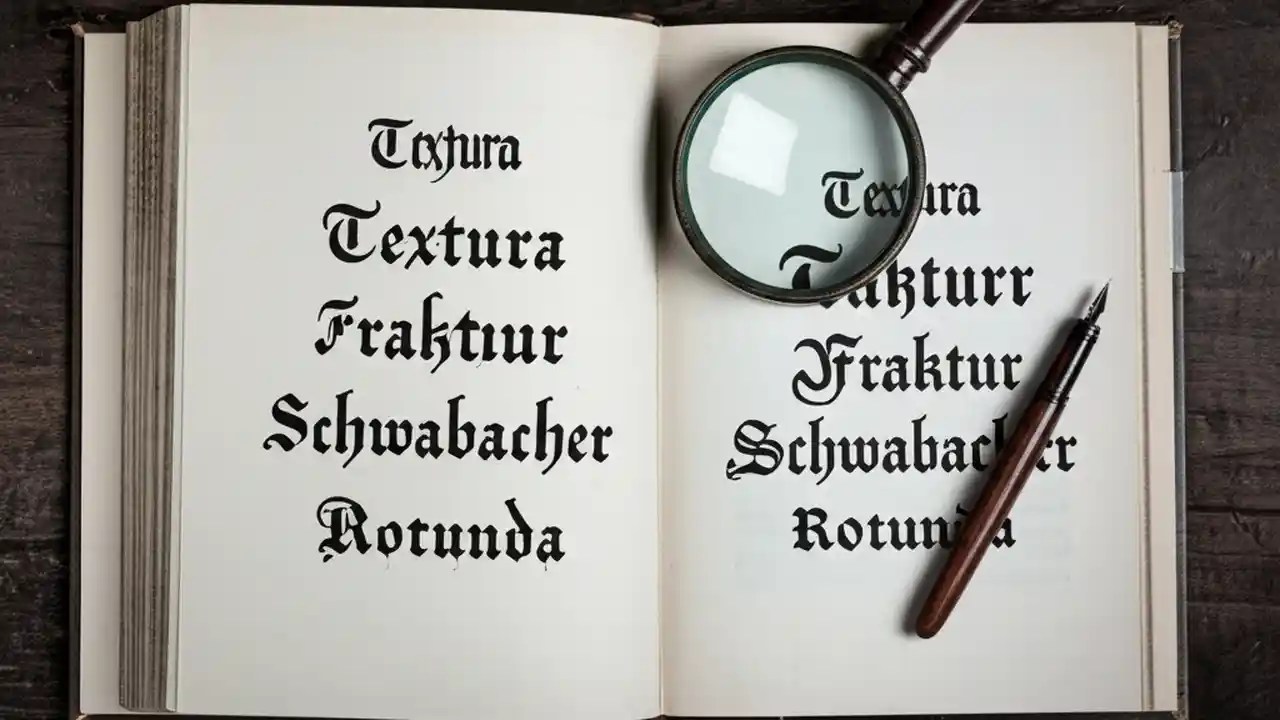 Textura
Fraktur
Schwabacher
Rotunda
Textura
Fraktur
Schwabacher
Rotunda